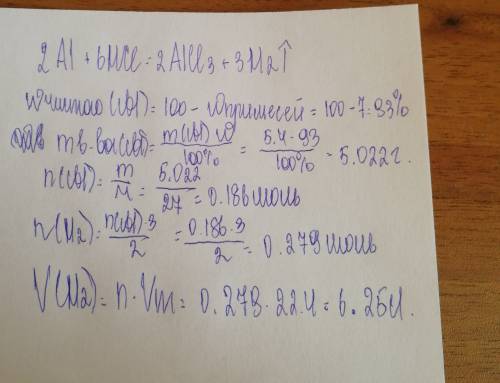 2Al + 6HCl = 2AlCl3 + 3H2↑
ωчистого(Al) = 100 - ωпримесей = 100 - 7 = 93%
m в-ва(Al) = m(Al)·ω / 100% = 5.4·93 / 100% = 5.022г.
n(Al) = m / M = 5.022 / 27 = 0.186 моль
n(H2) = n(Al)·3 / 2 = 0.186·3 / 2 = 0.279 моль
V(H2) = n·Vm = 0.279·22.4 = 6.25л.